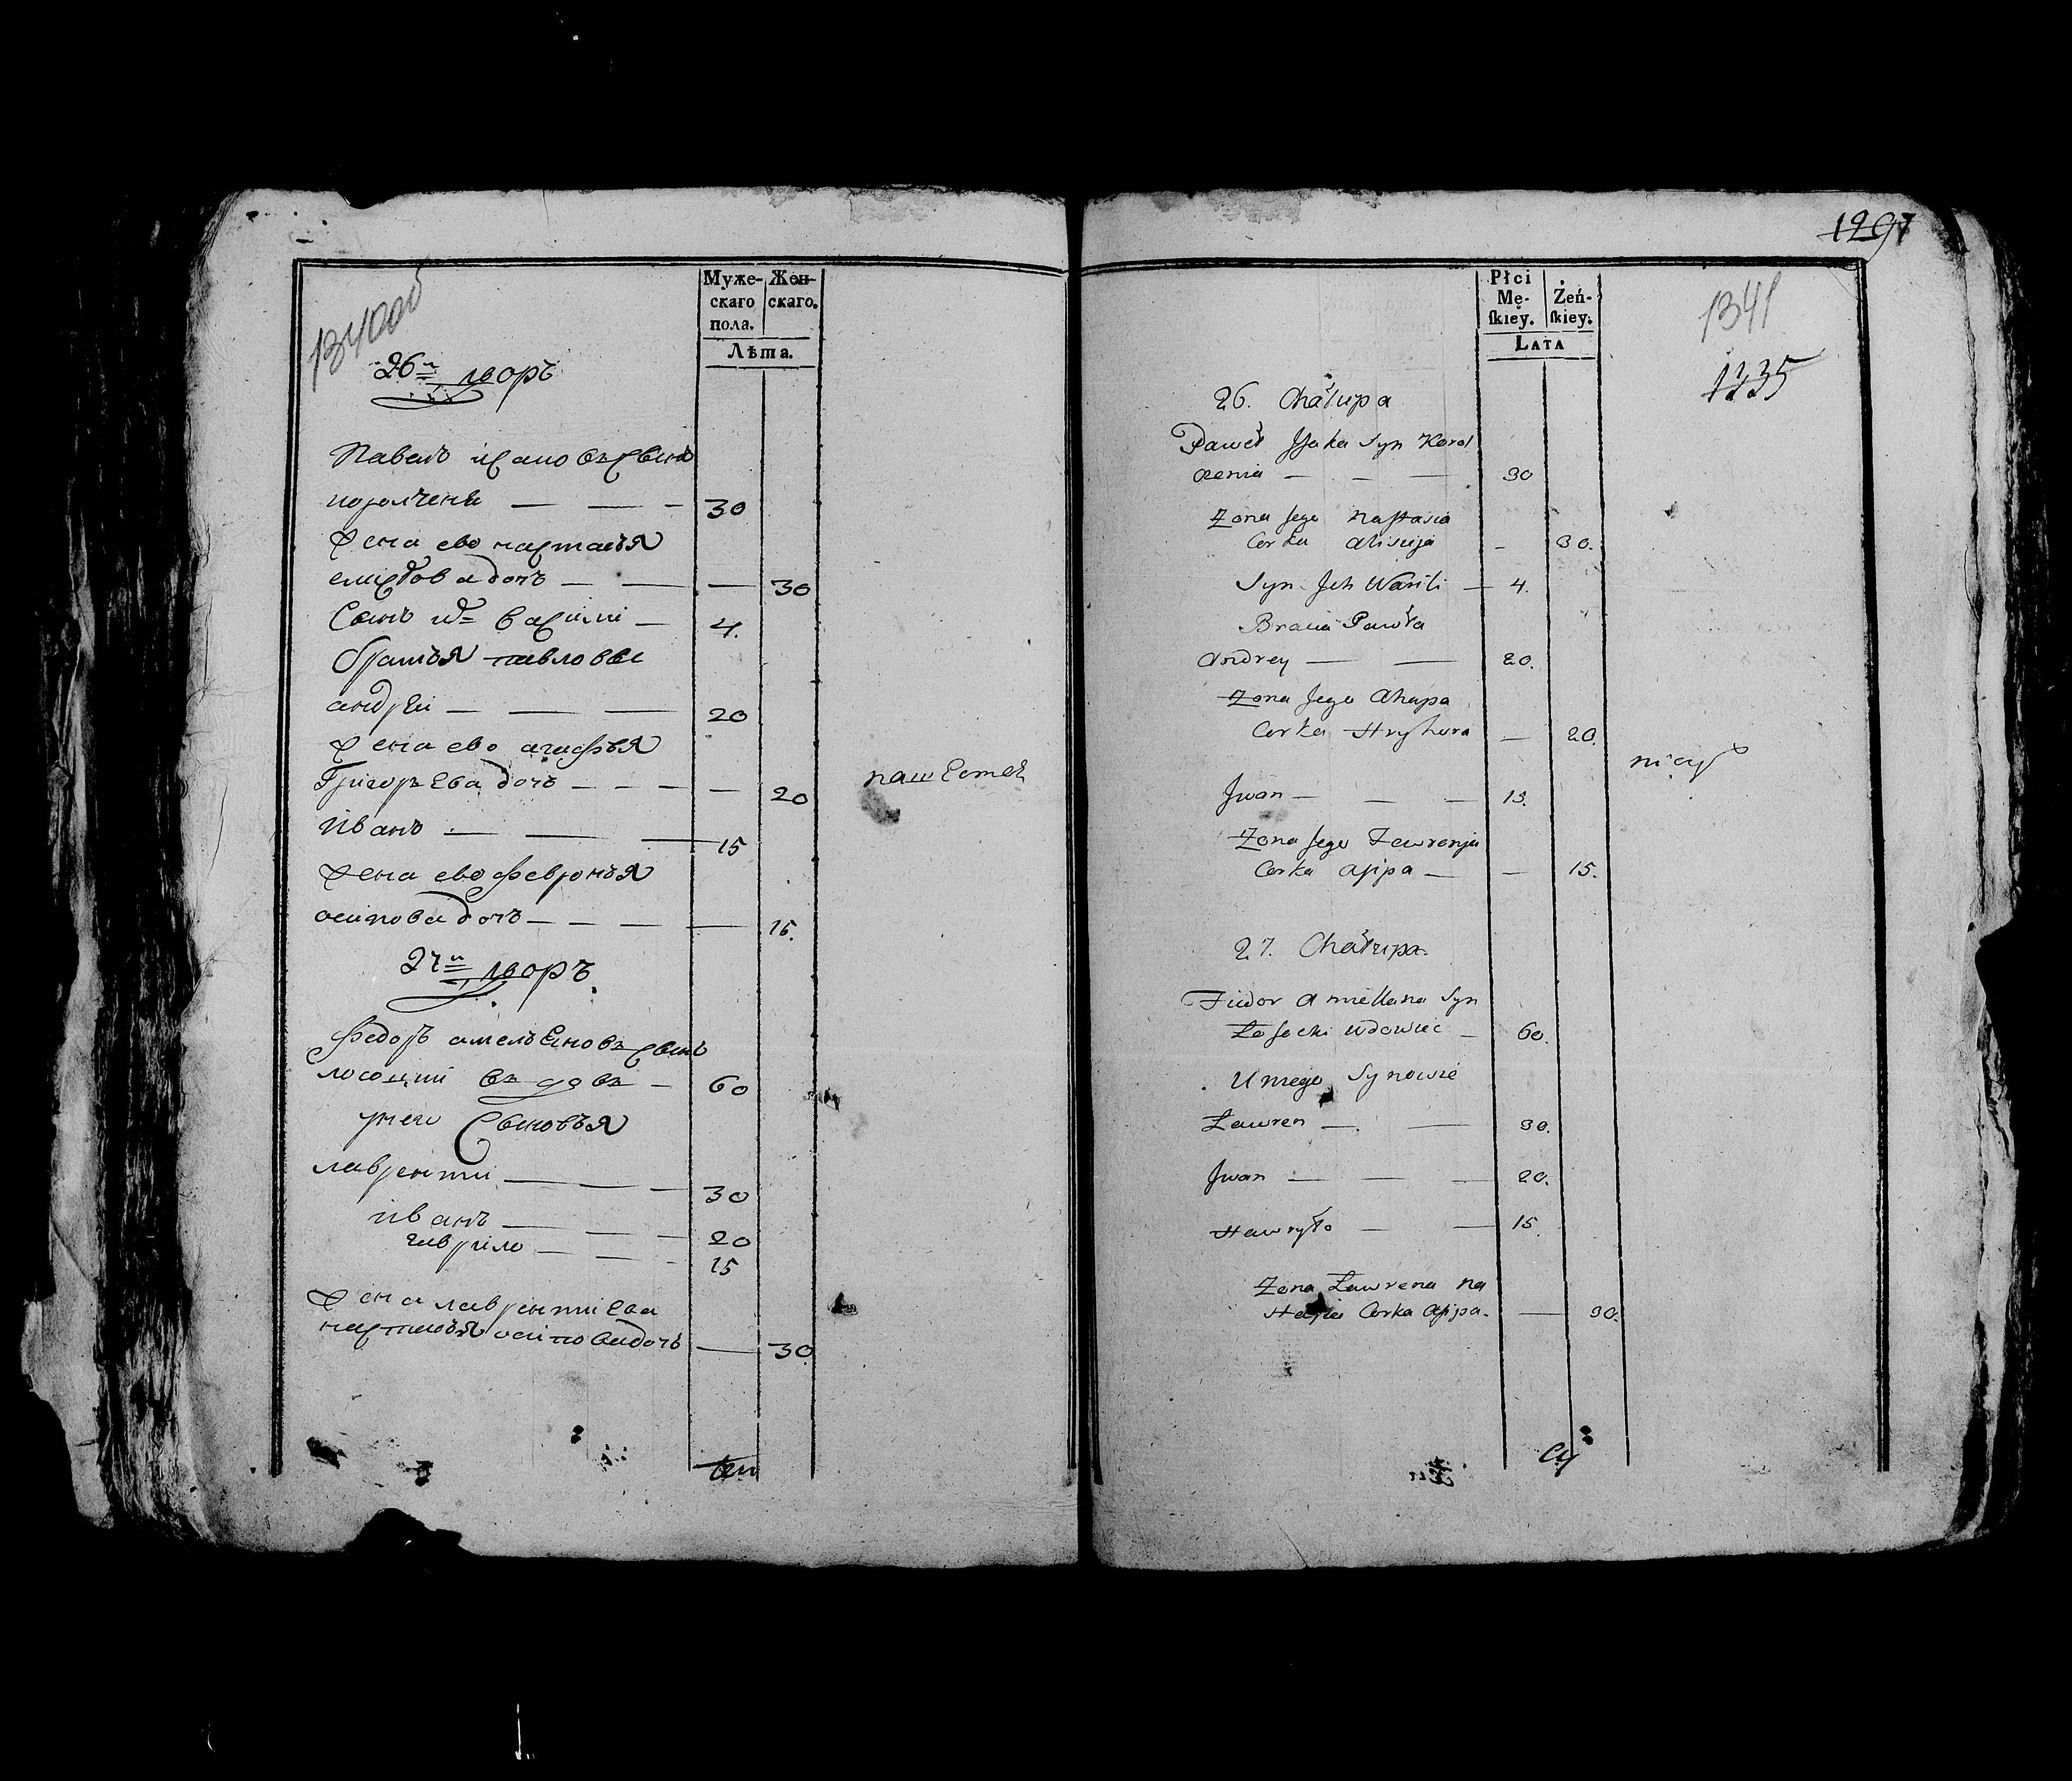 1340об
Муже-
скаго
пола.
Жен-
скаго.
Лѣта.
26й дворъ
Павелъ исаковъ сынъ
королчени — — - 30
Жена ево настасья
дочъ — — — 30
Сынъ их василии — 4.
братья павловы
андреи — — — 20
Жена ево агафья
Григорьева дочь - - - — 20
Иванъ — — — 15
Жена ево февронья
осипова дочь — - — — 15.
27й дворъ
Федоръ амельяновъ сынъ
лосоцкии вдовъ — 60
у него Сыновья
лаврентии — — — 30
иванъ — — - 20
гаврило — — - 15
Жена лаврентиева
настасья осипова дочь — 30.
1297
Płci
Mę-
skiey.
Żeń-
skiey.
LATA
1341
1335
26. Chałupa
Paweł Jsaka Syn Korol
czenia — - — 30
Żona Jego Nastasia
Corka - 30.
Syn Jch Wasili — 4.
Bracia Pawła
Andrey — — 20.
Żona Jego Ahapa
Corka Hryhora — 20.
Jwan — — — 15.
Żona Jego Fewronja
Corka Asipa — — 15.
27. Chałupa.
Fiudor Amiellana Syn
Łosocki wdowiec — 60.
U niego Synowie
Ławren — — 30.
Jwan — — — 20.
Hawryło — — 15.
Żona Ławrena Na
stazia Corka Asipa. — 30.